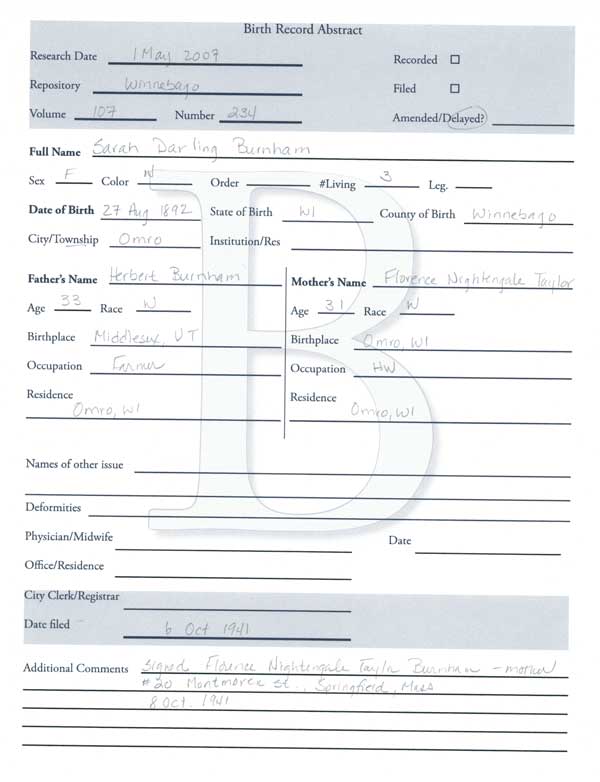 Birth Record Abstract
Research Date 1 May 2007 Recorded
Repository Winnebago Filed
Volume 107 Number 234 Amended/Delayed?
Full Name Sarah Darling Burnham
Sex F Color W Order #Living 3 Leg.
Date of Birth 27 Aug 1892 State of Birth WI County of Birth Winnebago
City/Township Omro Institution/Res
Father's Name Herbert Burnham Mother's Name Florence Nightengale Taylor
Age 33 Race W Age 31 Race W
Birthplace Middlesex, VT Birthplace Omro, WI
Occupation Farmer Occupation HW
Residence Residence
Omro, WI Omro, WI
B
Names of other issue
Deformities
Physician/Midwife Date
Office/Residence
City Clerk/Registrar
Date filed 6 Oct 1941
Additional Comments Signed Florence Nightengale Taylor Burnham - mother
#20 St., Springfield, Mass
8 Oct. 1941